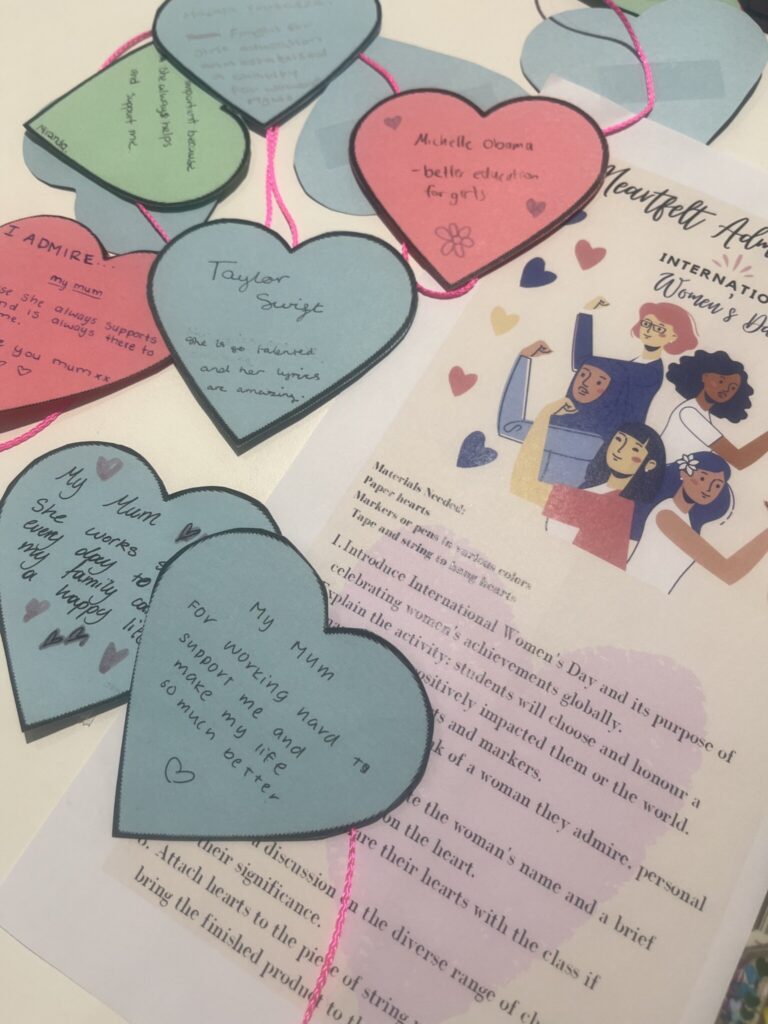 Fought for
girls education
and established
a charity
important because
she always helps
and support me.
Michelle Obama
-better education
for girls
I ADMIRE...
my mum
se she always supports
nd is always there to
me.
e you mum xx
Taylor
Swift
She is so talented
and her lyrics
are amazing.
My Mum
She works
every day to
my family
a happy life
My Mum
For working hard to
support me and
make my life
so much better
Heartfelt Adm
INTERNATIO
Women's Da
Materials Needed:
Paper hearts
Markers or pens in various colors
Tape and string to hang hearts
1. Introduce International Women's Day and its purpose of
celebrating women's achievements globally.
xplain the activity: students will choose and honour a
ositively impacted them or the world.
ts and markers.
k of a woman they admire, personal
te the woman's name and a brief
on the heart.
are their hearts with the class if
a discussion on the diverse range of ch
their significance.
6. Attach hearts to the piece of string
bring the finished product to th